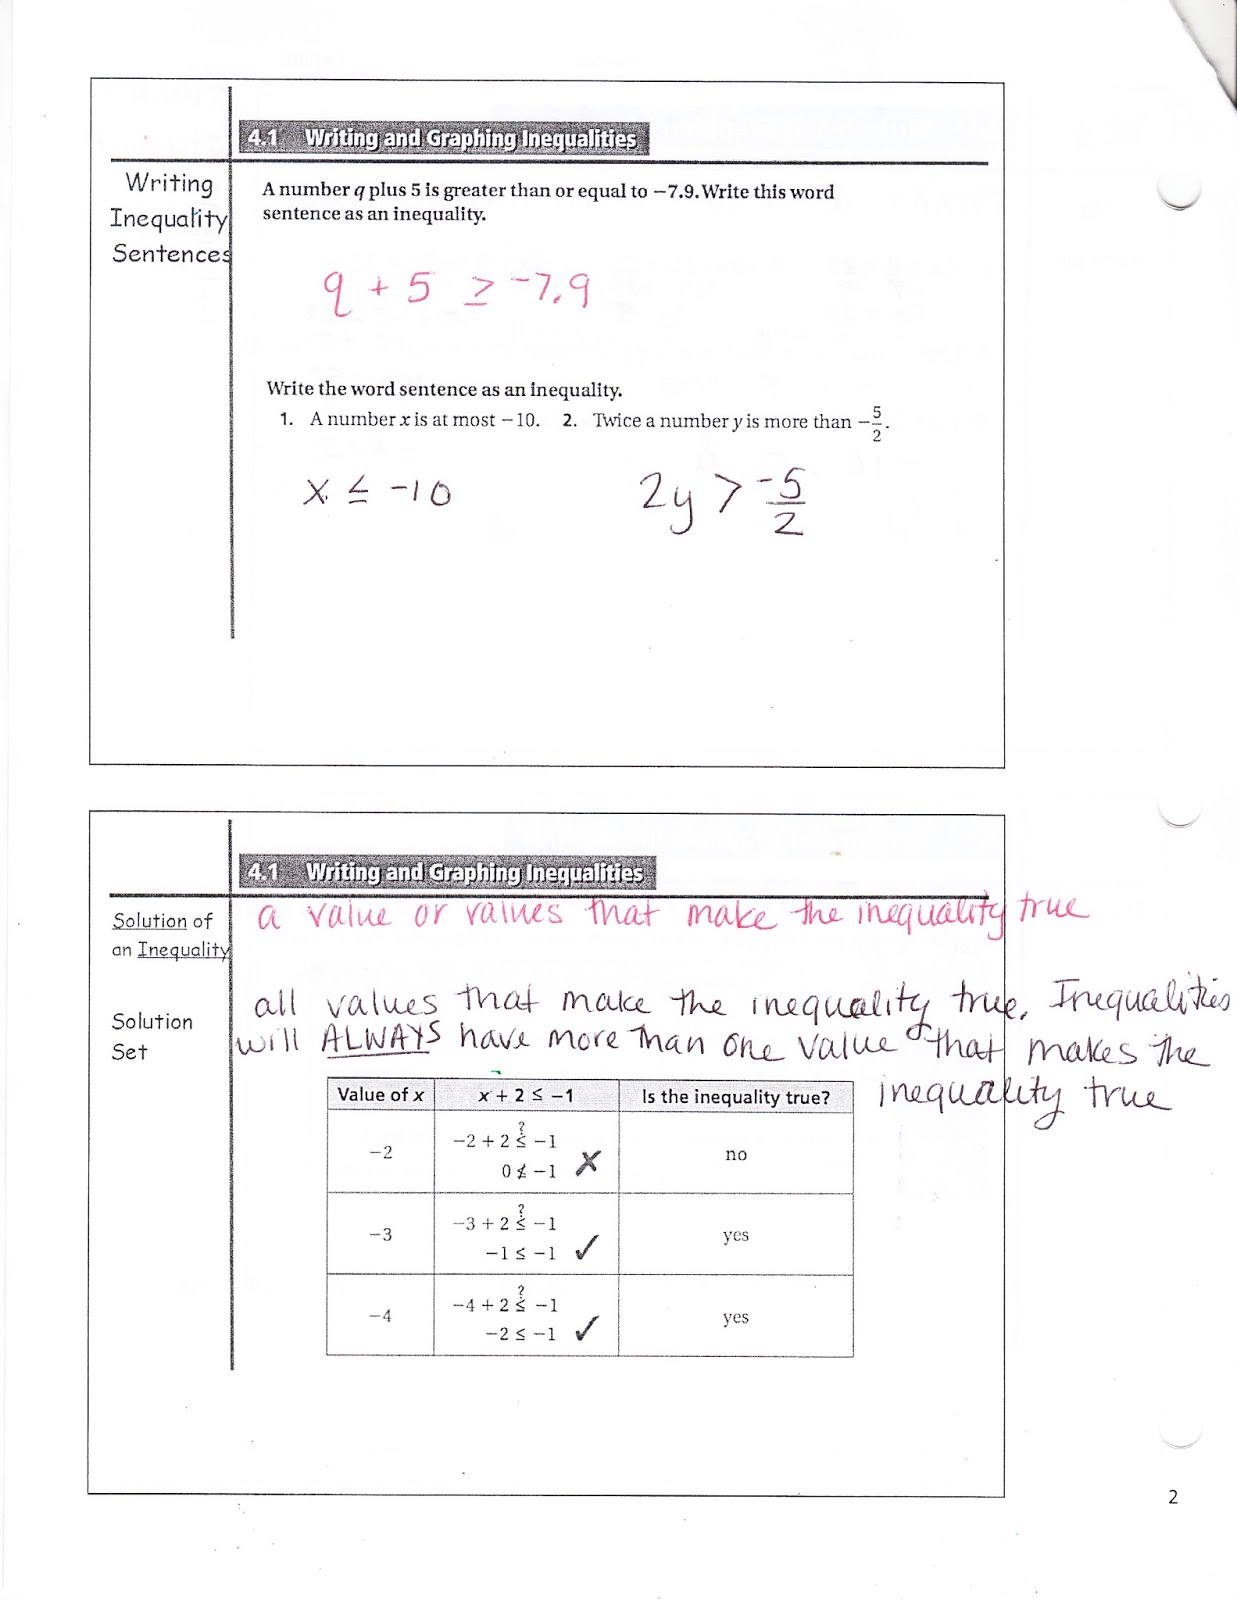 4.1 Writing and Graphing Inequalities
Writing
Inequality
Sentences
A number q plus 5 is greater than or equal to −7.9. Write this word
sentence as an inequality.
q + 5 ≥ -7.9
Write the word sentence as an inequality.
1. A number x is at most −10. 2. Twice a number y is more than −5/2.
x ≤ -10
2y > -5/2
4.1 Writing and Graphing Inequalities
Solution of
an Inequality
a value or values that make the inequality true
Solution
Set
all values that make the inequality true. Inequalities
will ALWAYS have more than one value that makes the
inequality true
Value of x x + 2 ≤ −1 Is the inequality true?
−2 + 2 ≤? −1
−2 no
0 ≰ −1 ✗
−3 + 2 ≤? −1
−3 yes
−1 ≤ −1 ✓
−4 + 2 ≤? −1
−4 yes
−2 ≤ −1 ✓
2